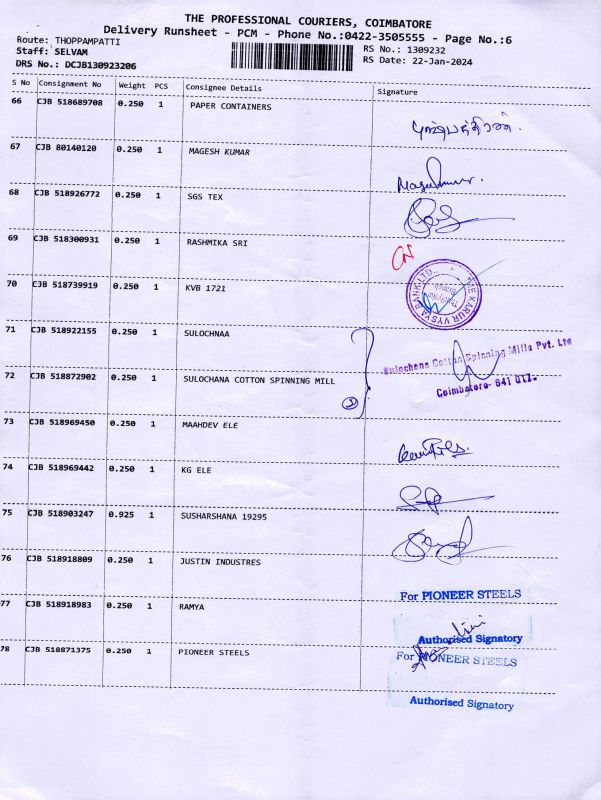 THE PROFESSIONAL COURIERS, COIMBATORE
Delivery Runsheet - PCM - Phone No.:0422-3505555 - Page No.:6
Route: THOPPAMPATTI
Staff: SELVAM
DRS No.: DCJB130923206
RS No.: 1309232
RS Date: 22-Jan-2024
S No Consignment No Weight PCS Consignee Details Signature
66 CJB 518689708 0.250 1 PAPER CONTAINERS
67 CJB 80140120 0.250 1 MAGESH KUMAR
68 CJB 518926772 0.250 1 SGS TEX
69 CJB 518300931 0.250 1 RASHMIKA SRI
70 CJB 518739919 0.250 1 KVB 1721
THE KARUR VYSYA BANK LTD.
71 CJB 518922155 0.250 1 SULOCHNAA
Sulochana Cotton Spinning Mills Pvt. Ltd
72 CJB 518872902 0.250 1 SULOCHANA COTTON SPINNING MILL
2
Coimbatore- 641 012.
73 CJB 518969450 0.250 1 MAAHDEV ELE
74 CJB 518969442 0.250 1 KG ELE
75 CJB 518903247 0.925 1 SUSHARSHANA 19295
76 CJB 518918809 0.250 1 JUSTIN INDUSTRES
For PIONEER STEELS
77 CJB 518918983 0.250 1 RAMYA
Authorised Signatory
78 CJB 518871375 0.250 1 PIONEER STEELS
For PIONEER STEELS
Authorised Signatory